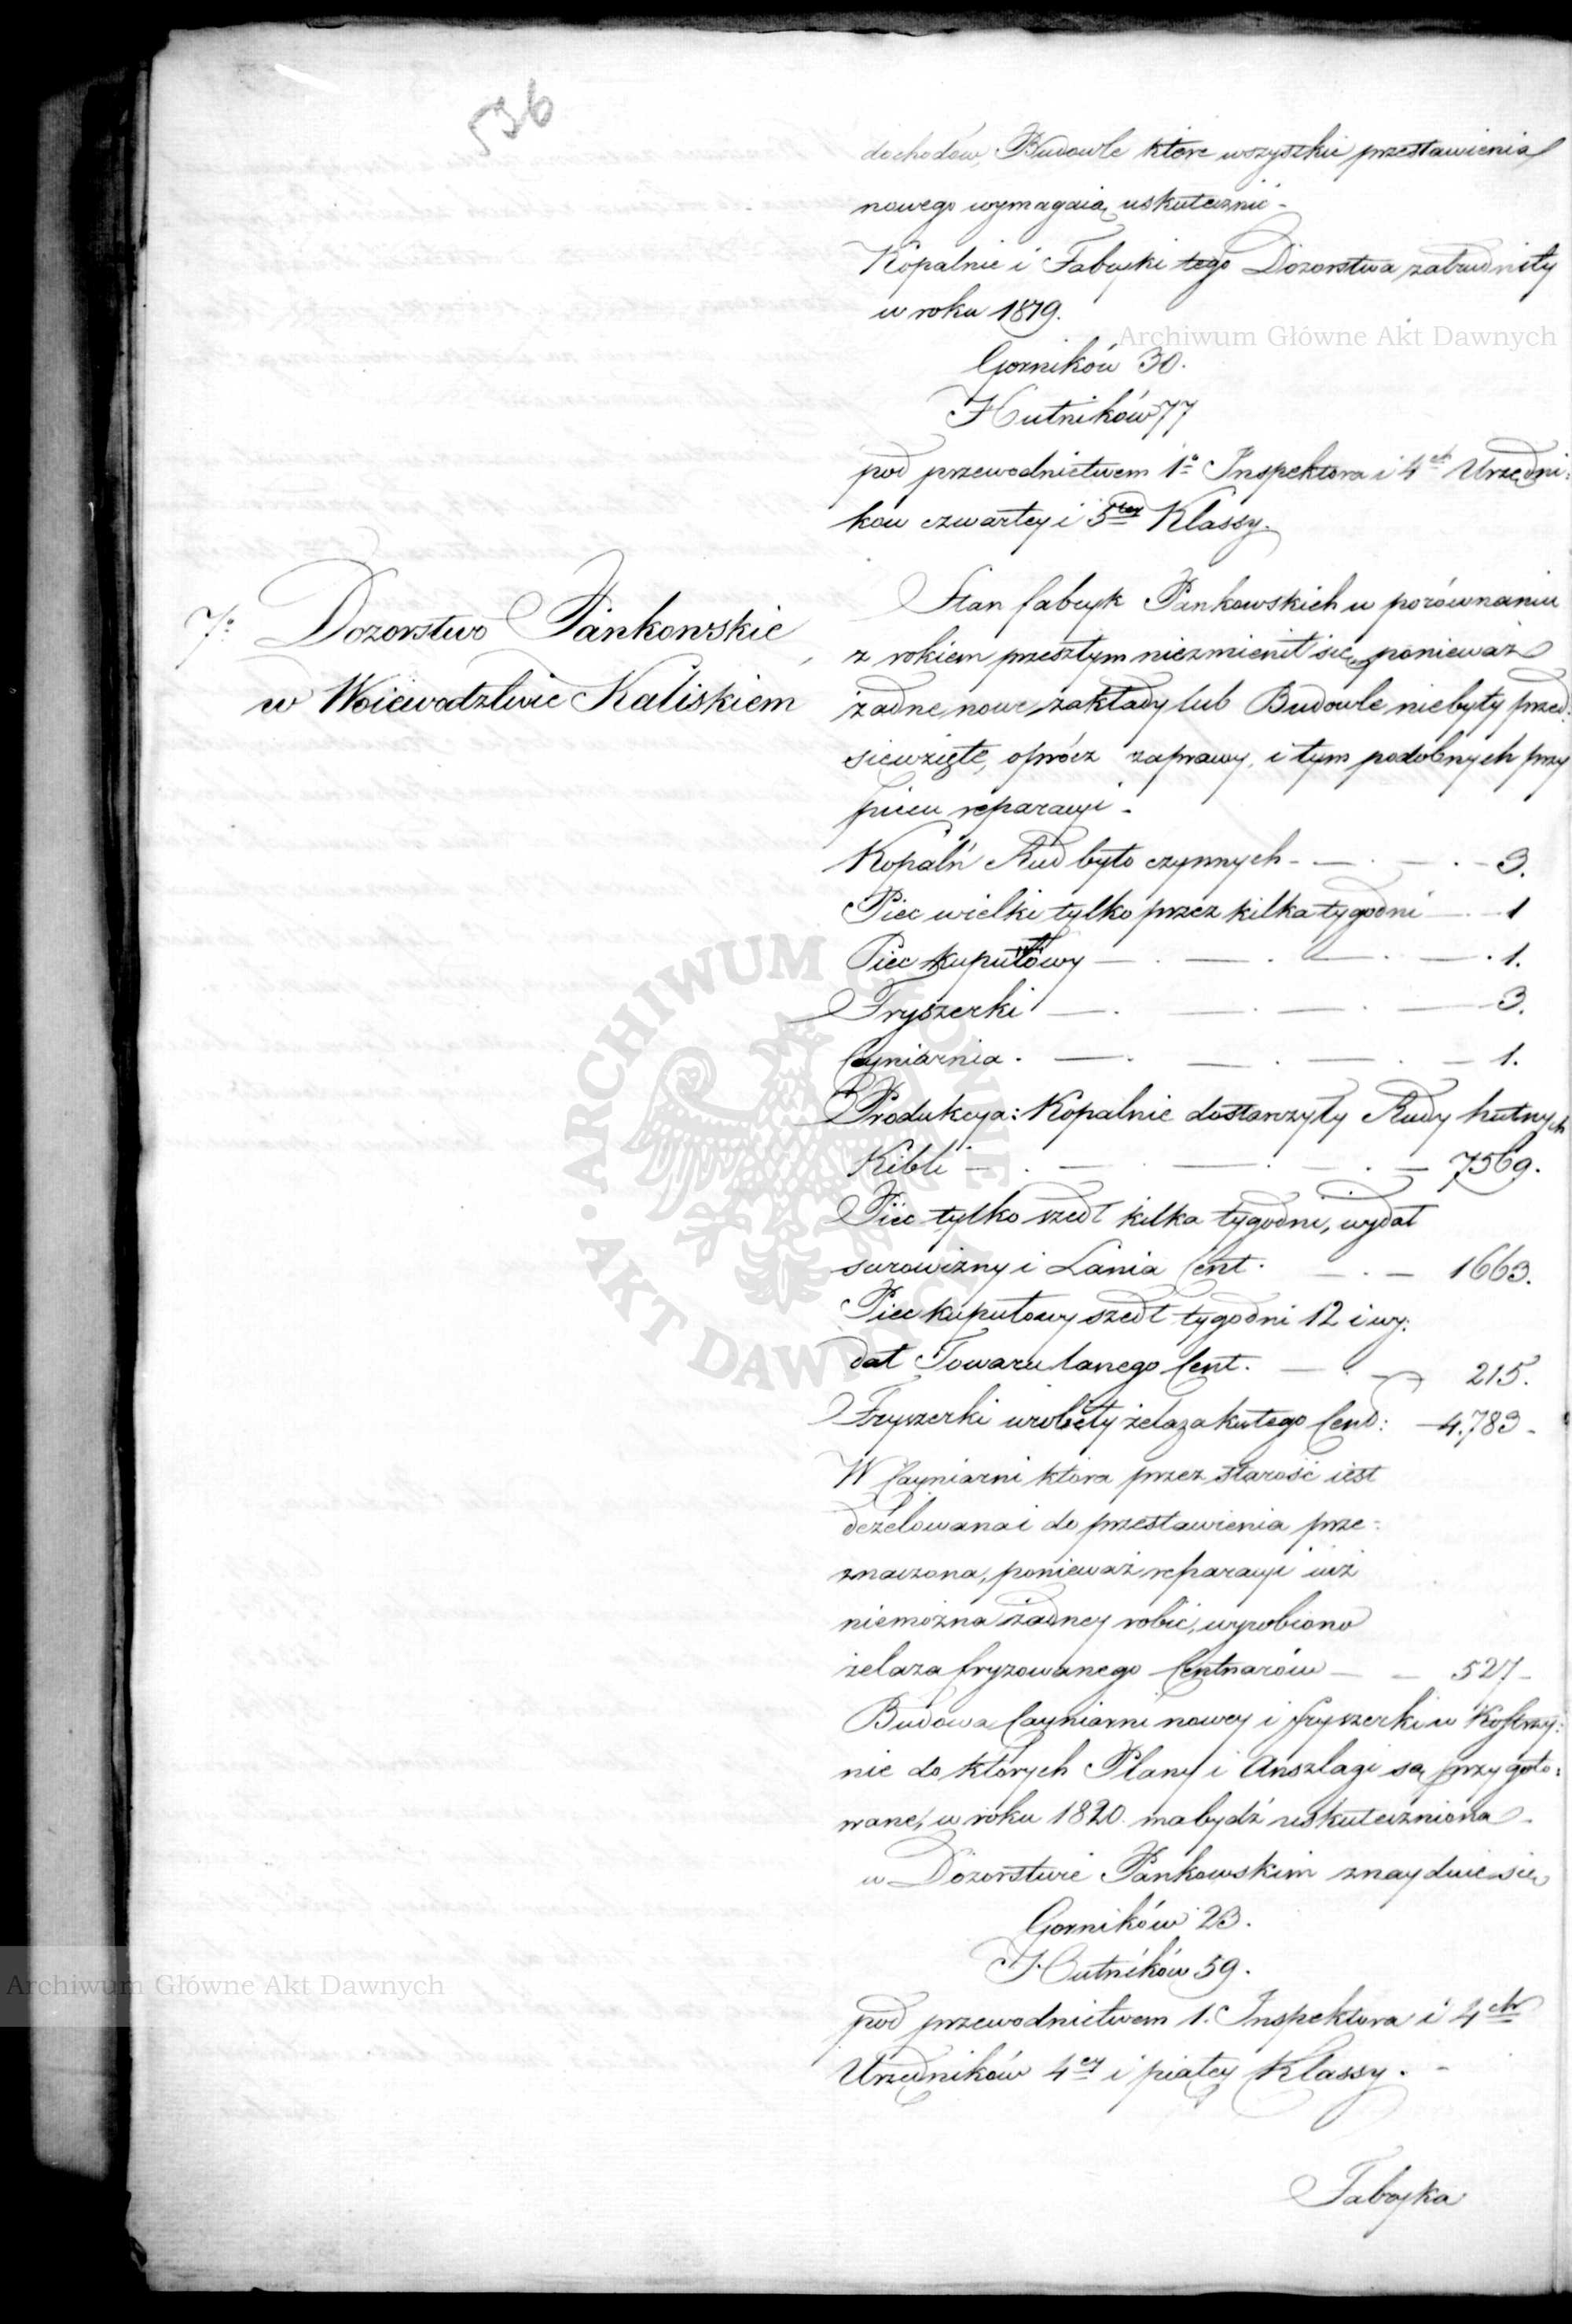 536
dochodów, Budowle które wszystkie przestawienia
nowego wymagaią uskutecznić -
Kopalnie i Fabryki tego Dozorstwa zatrudniły
w roku 1819.
Archiwum Główne Akt Dawnych
Gorników 30.
Hutników 77
pod przewodnictwem 1º Inspektora i 4ch Urzędni:
kow czwartey i 5tey Klassy.
7º Dozorstwo Pankowskie
w Woiewodztwie Kaliskiem
Stan fabryk Pankowskich w porównaniu
z rokiem przeszłym niezmienił się, ponieważ
żadne nowe zakłady lub Budowle niebyły przed:
siewzięte, oprócz zaprawy, i tym podobnych przy
piecu reparacyi -
Kopalń Rud było czynnych - 3.
Piec wielki tylko przez kilka tygodni - 1
Piec kupulowy - 1.
Fryszerki - 3.
Cayniarnia - 1.
Produkcya: Kopalnie dostarczyły Rudy hutnych
Kibli - 7569.
Piec tylko szedł kilka tygodni, wydał
surowizny i Lania Cent. - 1663.
Piec kupulowy szedł tygodni 12 i wy:
dał Towaru lanego Cent. - 215.
Fryszerki urobiły żelaza kutego Cent: - 4.783 -
W Cayniarni która przez starość iest
dezelowana i do przestawienia prze-
znaczona, ponieważ reparacyi iuż
niemożna żadney robić, wyrobiono
żelaza fryzowanego Centnarów - 527 -
Budowa Cayniarni nowey i fryszerki w Kostrzy:
nie do których Plany i Anszlagi są przygoto:
wane, w roku 1820. ma bydź uskuteczniona -
w Dozorstwie Pankowskim znayduie się
Gorników 23.
Hutników 59.
Archiwum Główne Akt Dawnych
pod przewodnictwem 1. Inspektora i 4ch
Urzędników 4ey i piątey Klassy. -
Fabryka
ARCHIWUM GŁÓWNE AKT DAWNYCH